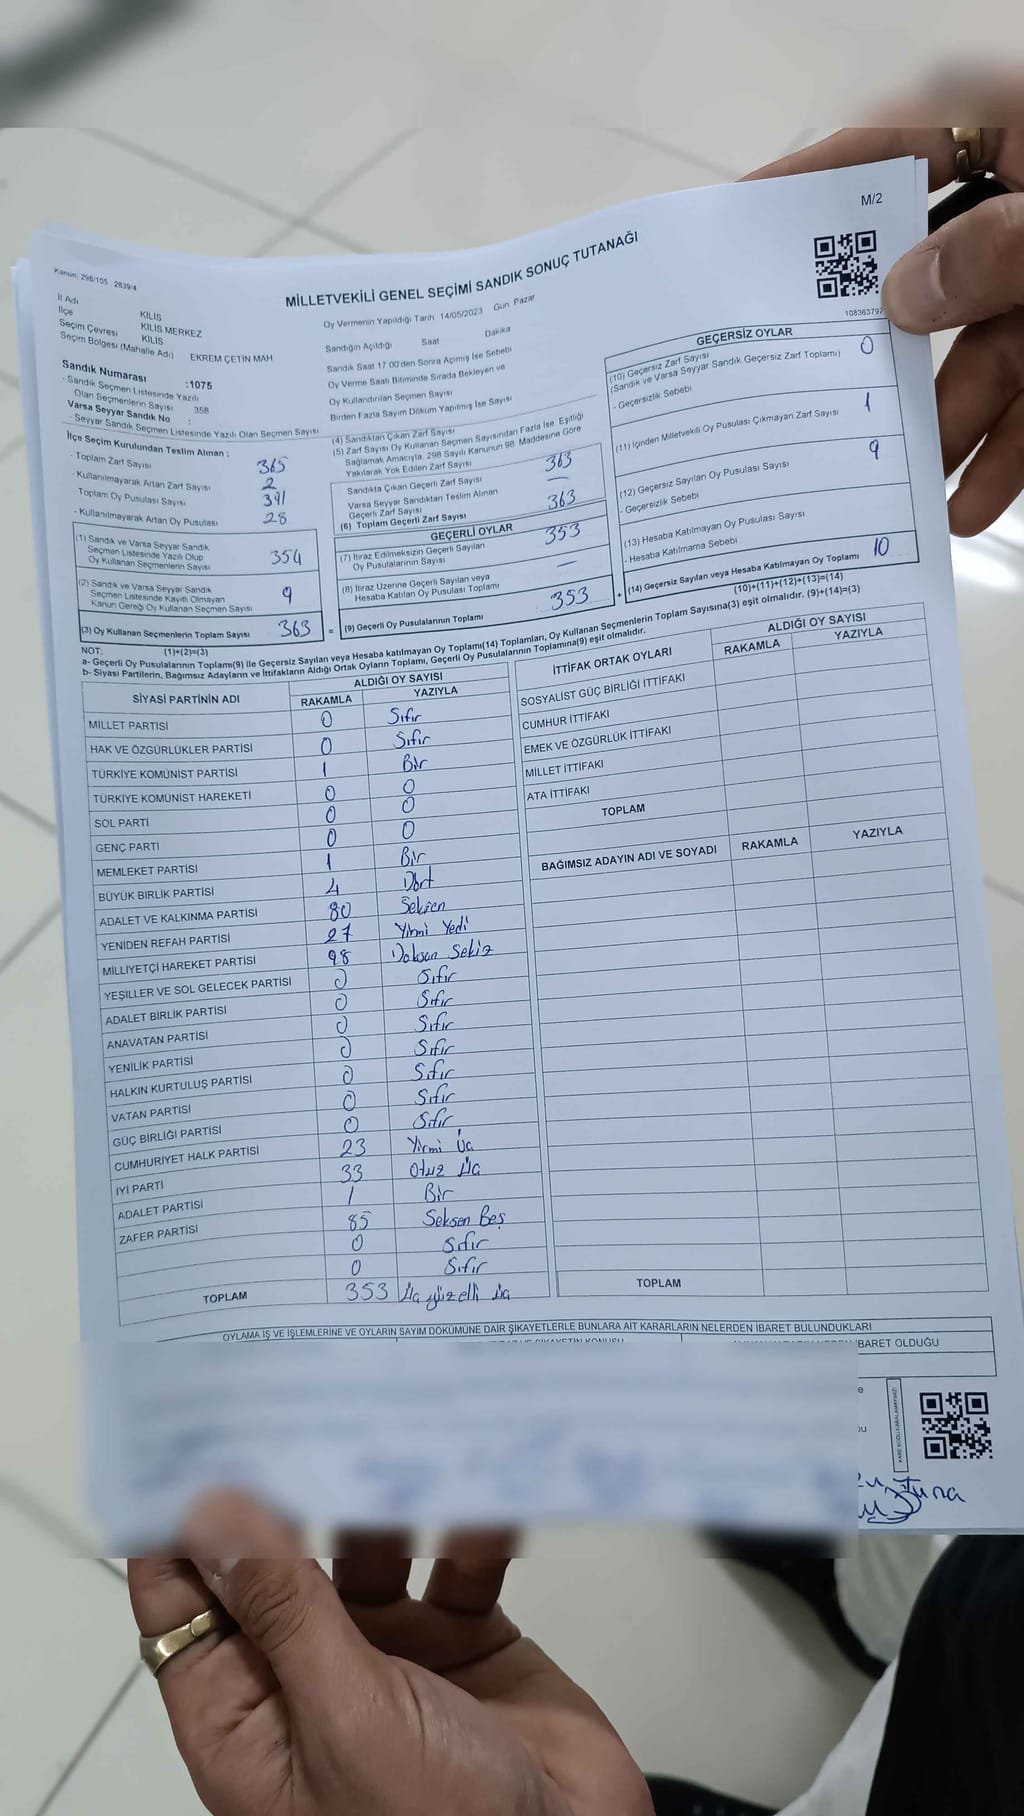 M/2
Kanun: 298/105 2839/4
MİLLETVEKİLİ GENEL SEÇİMİ SANDIK SONUÇ TUTANAĞI
108363797
İl Adı KİLİS
İlçe KİLİS MERKEZ
Seçim Çevresi KİLİS
Seçim Bölgesi (Mahalle Adı) EKREM ÇETİN MAH
Sandık Numarası :1075
- Sandık Seçmen Listesinde Yazılı
Olan Seçmenlerin Sayısı 358
Varsa Seyyar Sandık No :
- Seyyar Sandık Seçmen Listesinde Yazılı Olan Seçmen Sayısı
Oy Vermenin Yapıldığı Tarih 14/05/2023 Gün Pazar
Sandığın Açıldığı Saat Dakika
Sandık Saat 17:00'den Sonra Açımış İse Sebebi
Oy Verme Saati Bitiminde Sırada Bekleyen ve
Oy Kullandırılan Seçmen Sayısı
Birden Fazla Sayım Döküm Yapılmış İse Sayısı
İlçe Seçim Kurulundan Teslim Alınan ;
- Toplam Zarf Sayısı 365
- Kullanılmayarak Artan Zarf Sayısı 2
- Toplam Oy Pusulası Sayısı 391
- Kullanılmayarak Artan Oy Pusulası 28
(1) Sandık ve Varsa Seyyar Sandık
Seçmen Listesinde Yazılı Olup
Oy Kullanan Seçmenlerin Sayısı 354
(2) Sandık ve Varsa Seyyar Sandık
Seçmen Listesinde Kayıtlı Olmayan
Kanun Gereği Oy Kullanan Seçmen Sayısı 9
(3) Oy Kullanan Seçmenlerin Toplam Sayısı 363 =
(4) Sandıktan Çıkan Zarf Sayısı
(5) Zarf Sayısı Oy Kullanan Seçmen Sayısından Fazla İse, Eşitliği
Sağlamak Amacıyla, 298 Sayılı Kanunun 98. Maddesine Göre
Yakılarak Yok Edilen Zarf Sayısı
Sandıkta Çıkan Geçerli Zarf Sayısı 363
Varsa Seyyar Sandıktan Teslim Alınan
Geçerli Zarf Sayısı —
(6) Toplam Geçerli Zarf Sayısı 363
GEÇERLİ OYLAR
(7) İtiraz Edilmeksizin Geçerli Sayılan
Oy Pusulalarının Sayısı 353
(8) İtiraz Üzerine Geçerli Sayılan veya
Hesaba Katılan Oy Pusulası Toplamı —
(9) Geçerli Oy Pusulalarının Toplamı : 353 +
GEÇERSİZ OYLAR
(10) Geçersiz Zarf Sayısı 0
(Sandık ve Varsa Seyyar Sandık Geçersiz Zarf Toplamı)
- Geçersizlik Sebebi
(11) İçinden Milletvekili Oy Pusulası Çıkmayan Zarf Sayısı 1
(12) Geçersiz Sayılan Oy Pusulası Sayısı 9
- Geçersizlik Sebebi
(13) Hesaba Katılmayan Oy Pusulası Sayısı
- Hesaba Katılmama Sebebi
(14) Geçersiz Sayılan veya Hesaba Katılmayan Oy Toplamı 10
(10)+(11)+(12)+(13)=(14)
NOT: (1)+(2)=(3)
a- Geçerli Oy Pusulalarının Toplamı(9) ile Geçersiz Sayılan veya Hesaba katılmayan Oy Toplamı(14) Toplamları, Oy Kullanan Seçmenlerin Toplam Sayısına(3) eşit olmalıdır. (9)+(14)=(3)
b- Siyasi Partilerin, Bağımsız Adayların ve İttifakların Aldığı Ortak Oyların Toplamı, Geçerli Oy Pusulalarının Toplamına(9) eşit olmalıdır.
SİYASİ PARTİNİN ADI ALDIĞI OY SAYISI
RAKAMLA YAZIYLA
MİLLET PARTİSİ 0 Sıfır
HAK VE ÖZGÜRLÜKLER PARTİSİ 0 Sıfır
TÜRKİYE KOMÜNİST PARTİSİ 1 Bir
TÜRKİYE KOMÜNİST HAREKETİ 0 0
SOL PARTİ 0 0
GENÇ PARTİ 0 0
MEMLEKET PARTİSİ 1 Bir
BÜYÜK BİRLİK PARTİSİ 4 Dört
ADALET VE KALKINMA PARTİSİ 80 Seksen
YENİDEN REFAH PARTİSİ 27 Yirmi Yedi
MİLLİYETÇİ HAREKET PARTİSİ 98 Doksan Sekiz
YEŞİLLER VE SOL GELECEK PARTİSİ 0 Sıfır
ADALET BİRLİK PARTİSİ 0 Sıfır
ANAVATAN PARTİSİ 0 Sıfır
YENİLİK PARTİSİ 0 Sıfır
HALKIN KURTULUŞ PARTİSİ 0 Sıfır
VATAN PARTİSİ 0 Sıfır
GÜÇ BİRLİĞİ PARTİSİ 0 Sıfır
CUMHURİYET HALK PARTİSİ 23 Yirmi Üç
İYİ PARTİ 33 Otuz Üç
ADALET PARTİSİ 1 Bir
ZAFER PARTİSİ 85 Seksen Beş
0 Sıfır
0 Sıfır
TOPLAM 353 Üç yüz elli üç
İTTİFAK ORTAK OYLARI ALDIĞI OY SAYISI
RAKAMLA YAZIYLA
SOSYALİST GÜÇ BİRLİĞİ İTTİFAKI
CUMHUR İTTİFAKI
EMEK VE ÖZGÜRLÜK İTTİFAKI
MİLLET İTTİFAKI
ATA İTTİFAKI
TOPLAM
BAĞIMSIZ ADAYIN ADI VE SOYADI RAKAMLA YAZIYLA
TOPLAM
OYLAMA İŞ VE İŞLEMLERİNE VE OYLARIN SAYIM DÖKÜMÜNE DAİR ŞİKAYETLERLE BUNLARA AİT KARARLARIN NELERDEN İBARET BULUNDUKLARI
İBARET OLDUĞU